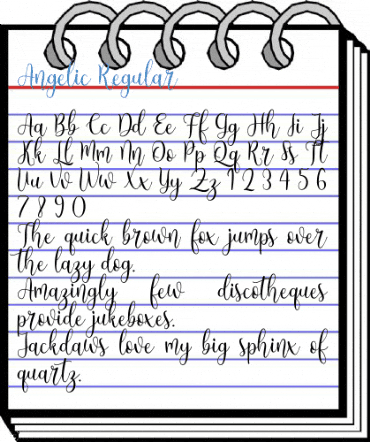 Angelic Regular
Aa Bb Cc Dd Ee Ff Gg Hh Ii Jj
Kk Ll Mm Nn Oo Pp Qq Rr Ss Tt
Uu Vv Ww Xx Yy Zz 1 2 3 4 5 6
7 8 9 0
The quick brown fox jumps over
the lazy dog.
Amazingly few discotheques
provide jukeboxes.
Jackdaws love my big sphinx of
quartz.